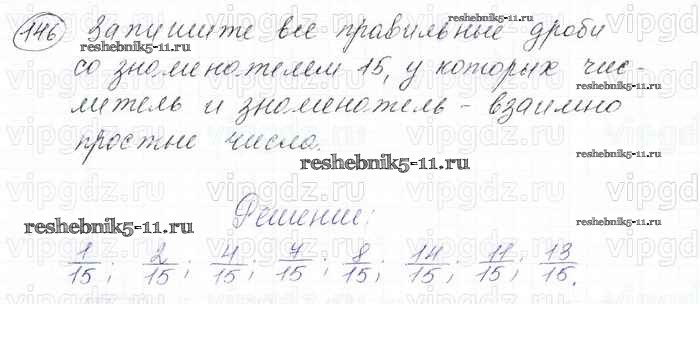 146 Запишите все правильные дроби
со знаменателем 15, у которых чис-
литель и знаменатель - взаимно
простые числа.
Решение:
1/15; 2/15; 4/15; 7/15; 8/15; 14/15; 11/15; 13/15.
reshebnik5-11.ru
reshebnik5-11.ru
reshebnik5-11.ru
reshebnik5-11.ru
reshebnik5-11.ru
reshebnik5-11.ru
reshebnik5-11.ru
vipgdz.ru